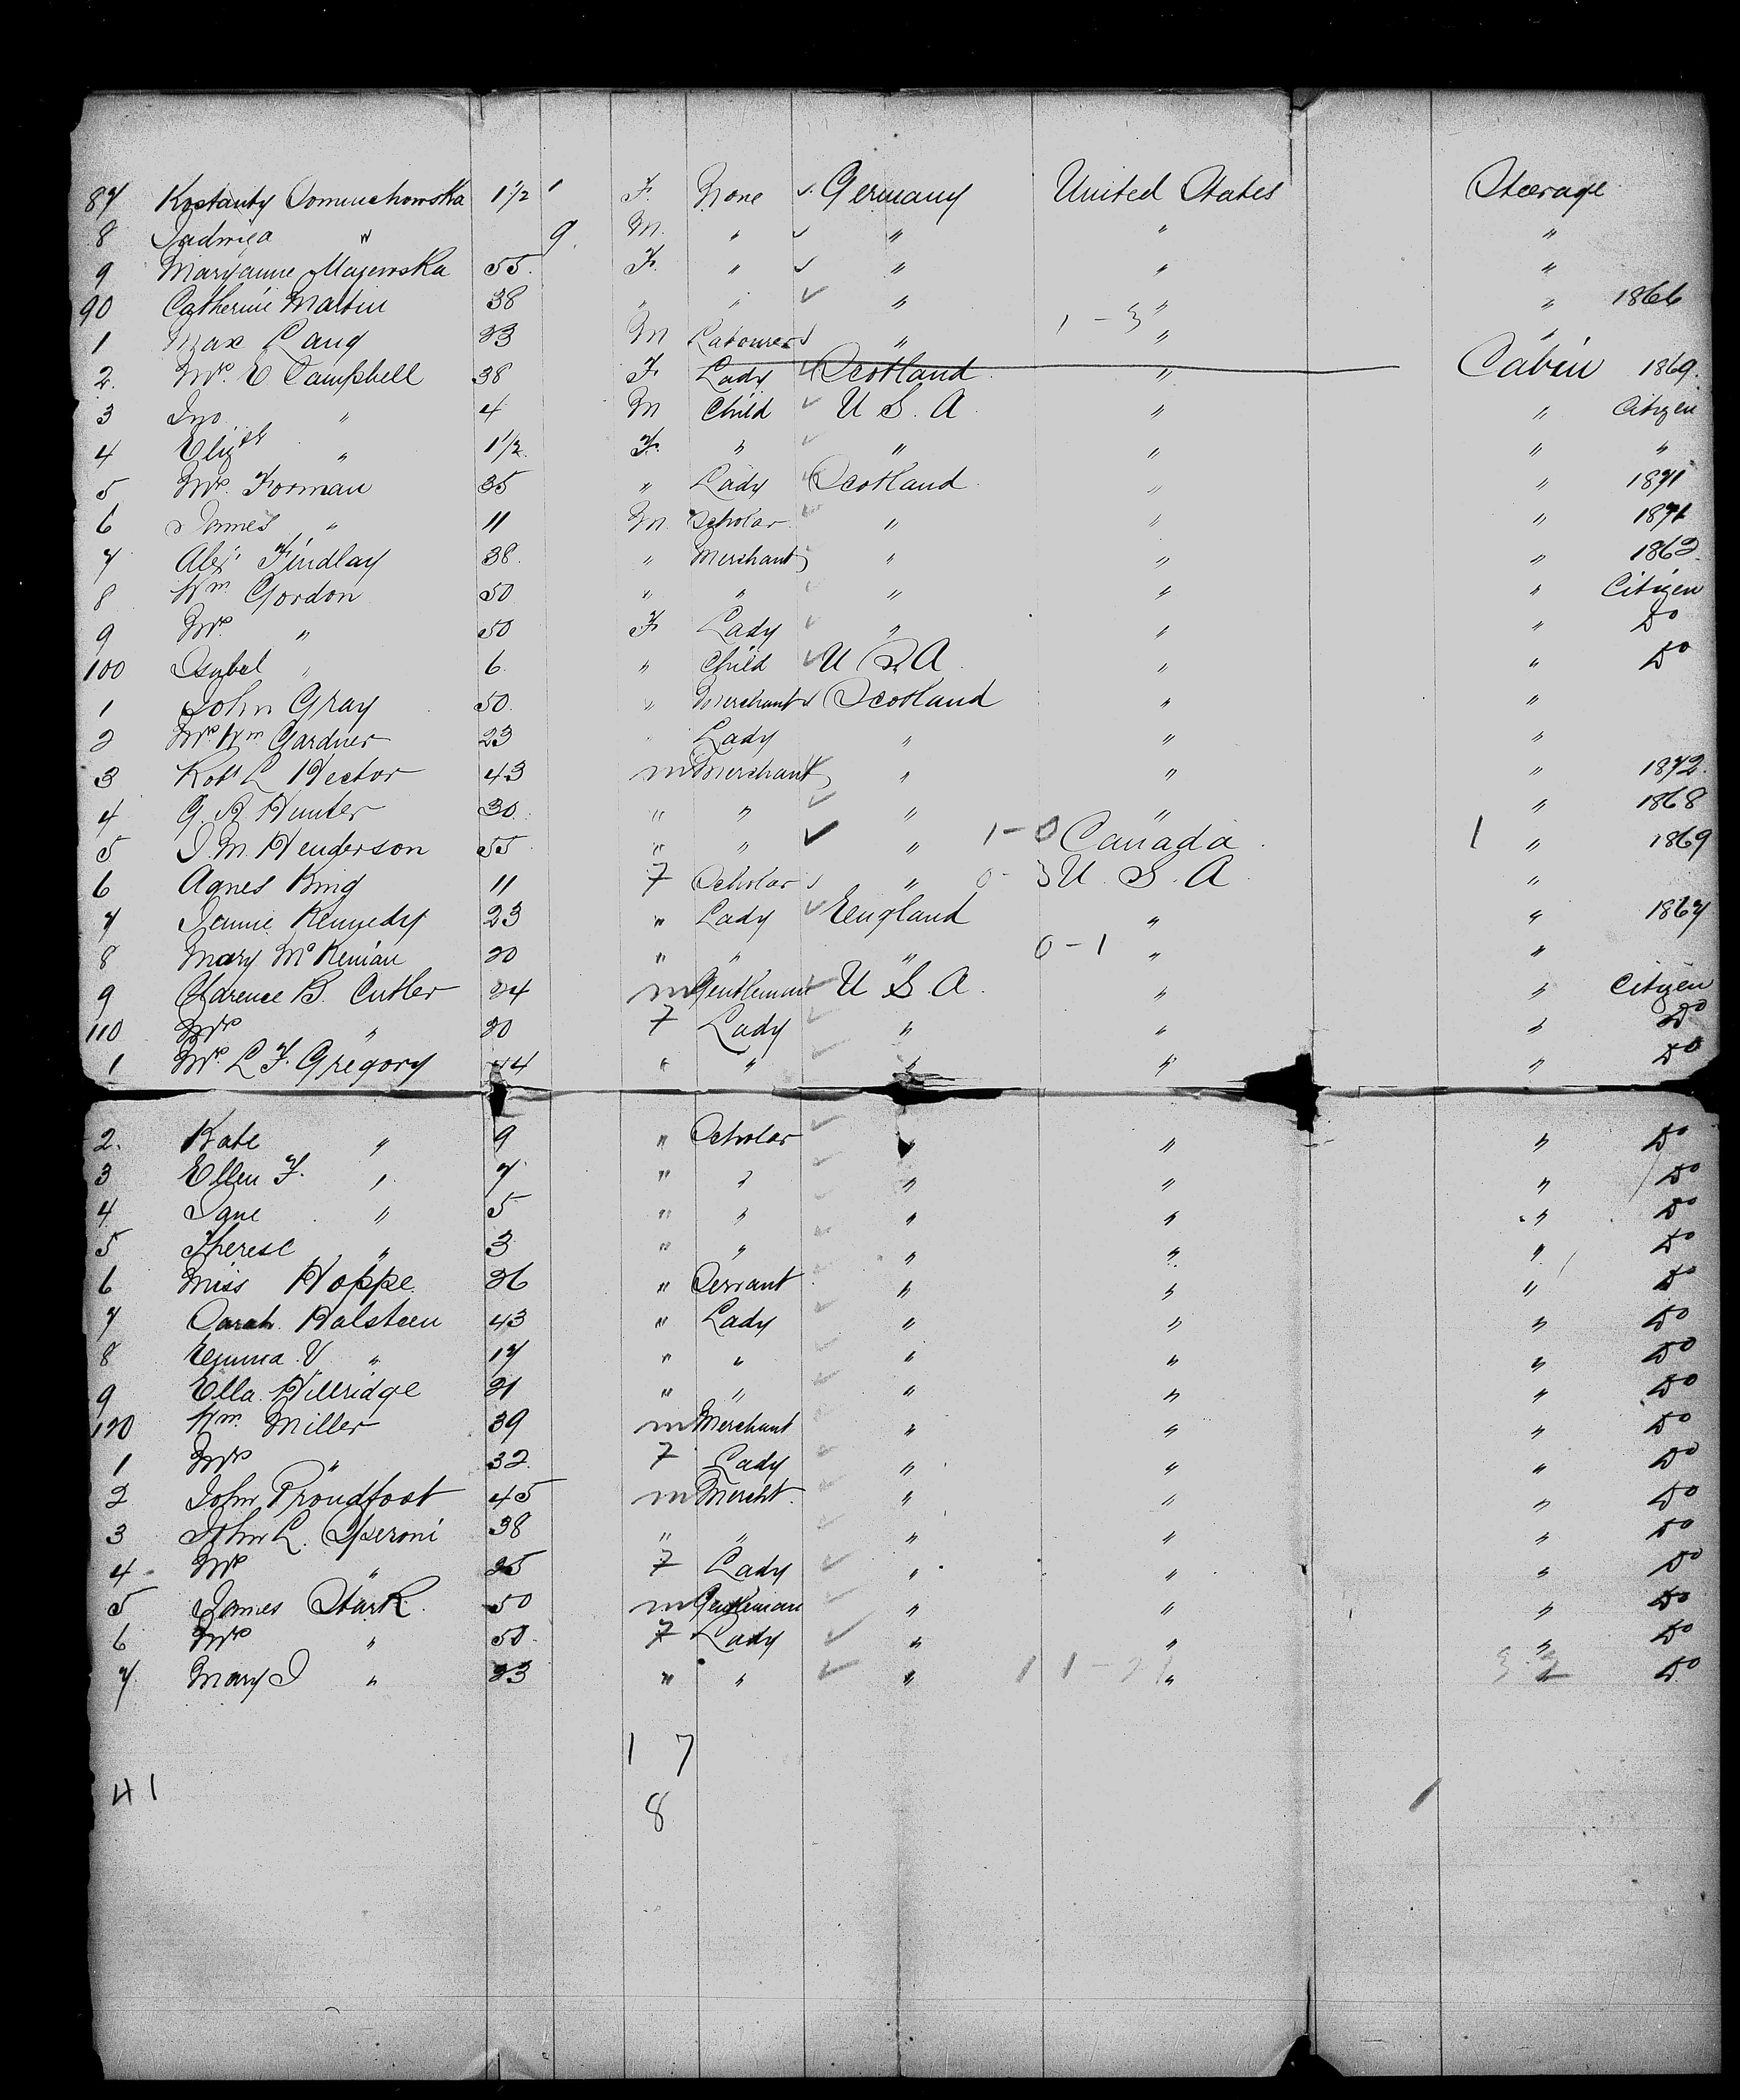 87 Kostanty Domuchowska 1 1/2 F. None ✓ Germany United States Steerage
8 Jadwiga " 9 M. " ✓ " " "
9 Maryanne Majewska 55. F. " ✓ " " "
90 Catherine Martin 38 " " ✓ " " " 1866
1 Max Lang 23 M Labourer ✓ " 1-3 " "
2. Mrs. E Campbell 38 F Lady ✓ Scotland " Cabin 1869.
3 Jno. " 4 M Child ✓ U S. A " " Citizen
4 Elizth " 1 1/2. F. " ✓ " " " "
5 Mrs. Forman 35 " Lady ✓ Scotland " " 1871
6 James " 11 M. Scholar ✓ " " " 1871
7 Alexr. Findlay 38. " Merchant ✓ " " " 1862
8 Wm. Gordon 50 " " ✓ " " " Citizen
9 Mrs. " 50 F Lady ✓ " " " Do
100 Isabel " 6. " Child ✓ U S. A " " Do
1 John Gray 50. " Merchant ✓ Scotland " "
2 Mrs Wm Gardner 23 " Lady " " "
3 Robt L Hector 43 m Merchant ✓ " " " 1872.
4 G. A. Hunter 30. " " ✓ " " " 1868
5 J. M. Henderson 55 " " ✓ " 1-0 Canada 1 " 1869
6 Agnes King 11 F Scholar ✓ " 0-3 U. S. A "
7 Jennie Kennedy 23 " Lady ✓ England " " 1867
8 Mary McKenian 20 " " " 0-1 " "
9 Clarence B. Cutler 24 m Gentleman ✓ U S A. " " Citizen
110 Mrs " 20 F Lady ✓ " " " Do
1 Mrs. L F. Gregory 44 " " ✓ " " " Do
2. Kate " 9 " Scholar ✓ " " " Do
3 Ellen F. " 7 " " ✓ " " " Do
4 Jane " 5 " " ✓ " " " Do
5 Therese " 3 " " ✓ " " " Do
6 Miss Hoppe 26 " Servant " " " Do
7 Sarah Halsteen 43 " Lady ✓ " " " Do
8 Emma V " 17 " " ✓ " " " Do
9 Ella Hillridge 21 " " ✓ " " " Do
120 Wm. Miller 39 m Merchant ✓ " " " Do
1 Mrs " 32. F Lady ✓ " " " Do
2 John Proudfoot 45 m Mercht. ✓ " " " Do
3 John L. Speroni 38 " " ✓ " " " Do
4 Mrs " 25 F Lady ✓ " " " Do
5 James Stark 50 m Gentleman ✓ " " " Do
6 Mrs " 50. F Lady ✓ " " " Do
7 Mary J " 23 " " ✓ " " " Do
17
41
8